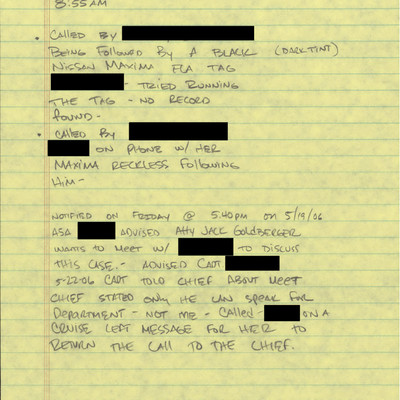 8:55AM
• CALLED BY
BEING FOLLOWED BY A BLACK (DARK TINT)
NISSAN MAXIMA FLA TAG
- TRIED RUNNING
THE TAG - NO RECORD
FOUND -
• CALLED BY
ON PHONE W/ HER
MAXIMA RECKLESS FOLLOWING
HIM -
NOTIFIED ON FRIDAY @ 5:40PM ON 5/19/06
ASA ADVISED ATTY JACK GOLDBERGER
WANTS TO MEET W/ TO DISCUSS
THIS CASE. - ADVISED CAPT
5-22-06 CAPT TOLD CHIEF ABOUT MEET
CHIEF STATED ONLY HE CAN SPEAK FOR
DEPARTMENT - NOT ME - CALLED - ON A
CRUISE LEFT MESSAGE FOR HER TO
RETURN THE CALL TO THE CHIEF.